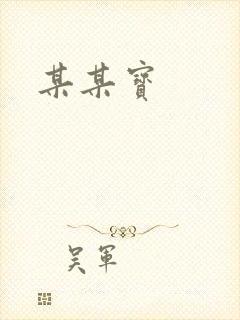 某某寶
吴軍